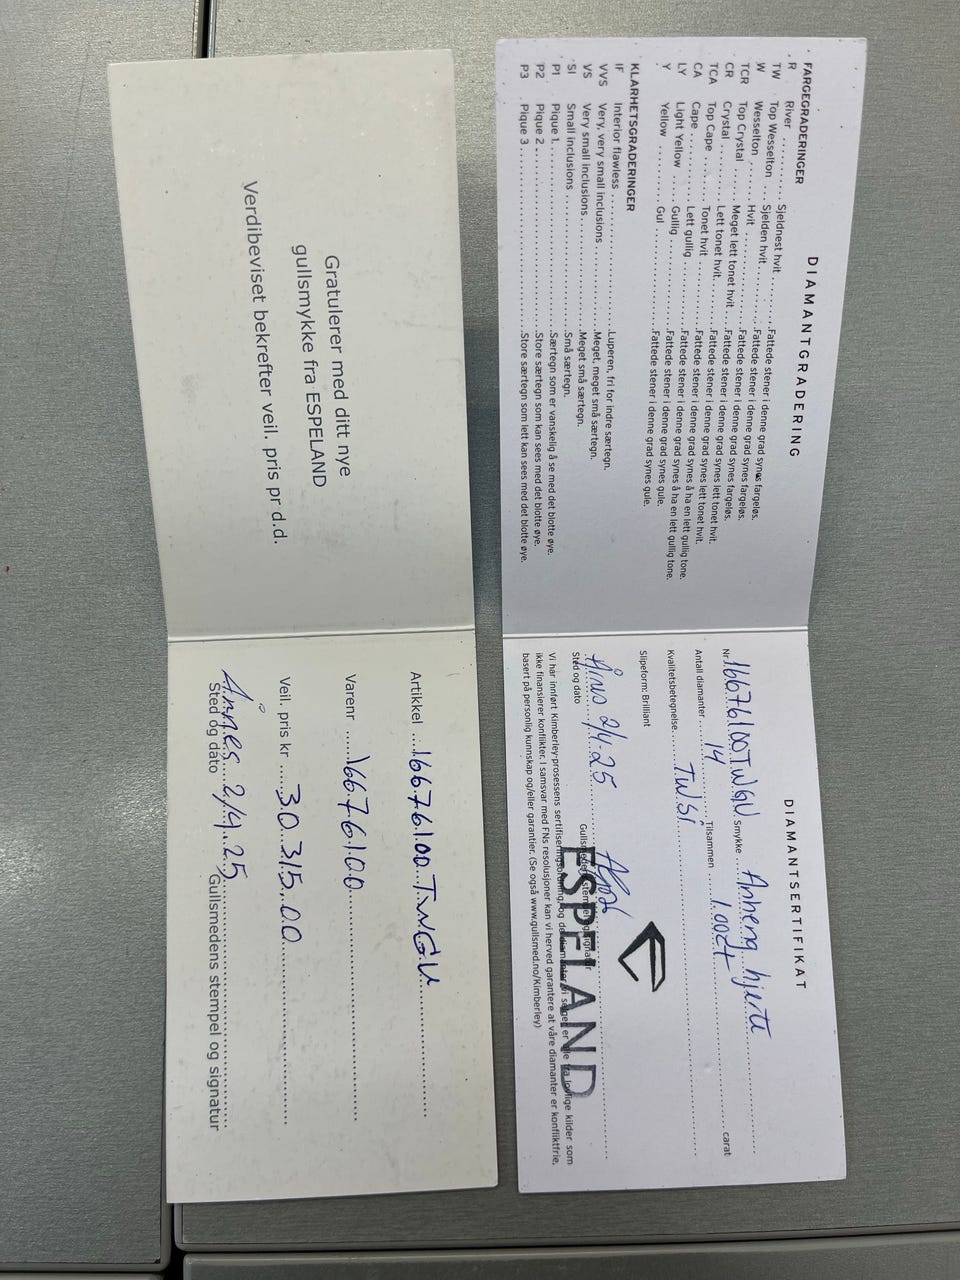 DIAMANTGRADERING
FARGEGRADERINGER
R River ........ Sjeldnest hvit ........ Fattede stener i denne grad synes fargeløs.
TW Top Wesselton ... Sjelden hvit ........ Fattede stener i denne grad synes fargeløs.
W Wesselton ........ Hvit ........ Fattede stener i denne grad synes fargeløs.
TCR Top Crystal ........ Meget lett tonet hvit . Fattede stener i denne grad synes fargeløs.
CR Crystal ........ Lett tonet hvit ........ Fattede stener i denne grad synes lett tonet hvit.
TCA Top Cape ........ Tonet hvit ........ Fattede stener i denne grad synes lett tonet hvit.
CA Cape ........ Lett gullig ........ Fattede stener i denne grad synes å ha en lett gullig tone.
LY Light Yellow .... Gullig ........ Fattede stener i denne grad synes å ha en lett gullig tone.
Y Yellow ........ Gul ........ Fattede stener i denne grad synes gule.
KLARHETSGRADERINGER
IF Interior flawless ........ Luperen, fri for indre særtegn.
VVS Very, very small inclusions ........ Meget, meget små særtegn.
VS Very small inclusions ........ Meget små særtegn.
SI Small inclusions ........ Små særtegn.
P1 Pique 1 ........ Særtegn som er vanskelig å se med det blotte øye.
P2 Pique 2 ........ Store særtegn som kan sees med det blotte øye.
P3 Pique 3 ........ Store særtegn som lett kan sees med det blotte øye.
DIAMANTSERTIFIKAT
Nr 16676100TWGV Smykke Anheng hjerte
Antall diamanter 14 Tilsammen 1.00ct carat
Kvalitetsbetegnelse TW.Si
Slipeform: Brilliant
Årnes 2/4-25
Sted og dato Gullsmedens stempel og signatur
ESPELAND
Vi har innført Kimberley-prosessens sertifiseringsordning, og de diamanter vi selger er alle fra lovlige kilder som
ikke finansierer konflikter. I samsvar med FNs resolusjoner kan vi herved garantere at våre diamanter er konfliktfrie,
basert på personlig kunnskap og/eller garantier. (Se også www.gullsmed.no/Kimberley)
Gratulerer med ditt nye
gullsmykke fra ESPELAND
Verdibeviset bekrefter veil. pris pr d.d.
Artikkel 16676100TWGV
Varenr 16676100
Veil. pris kr 30.315.00
Årnes 2/4.25
Sted og dato Gullsmedens stempel og signatur